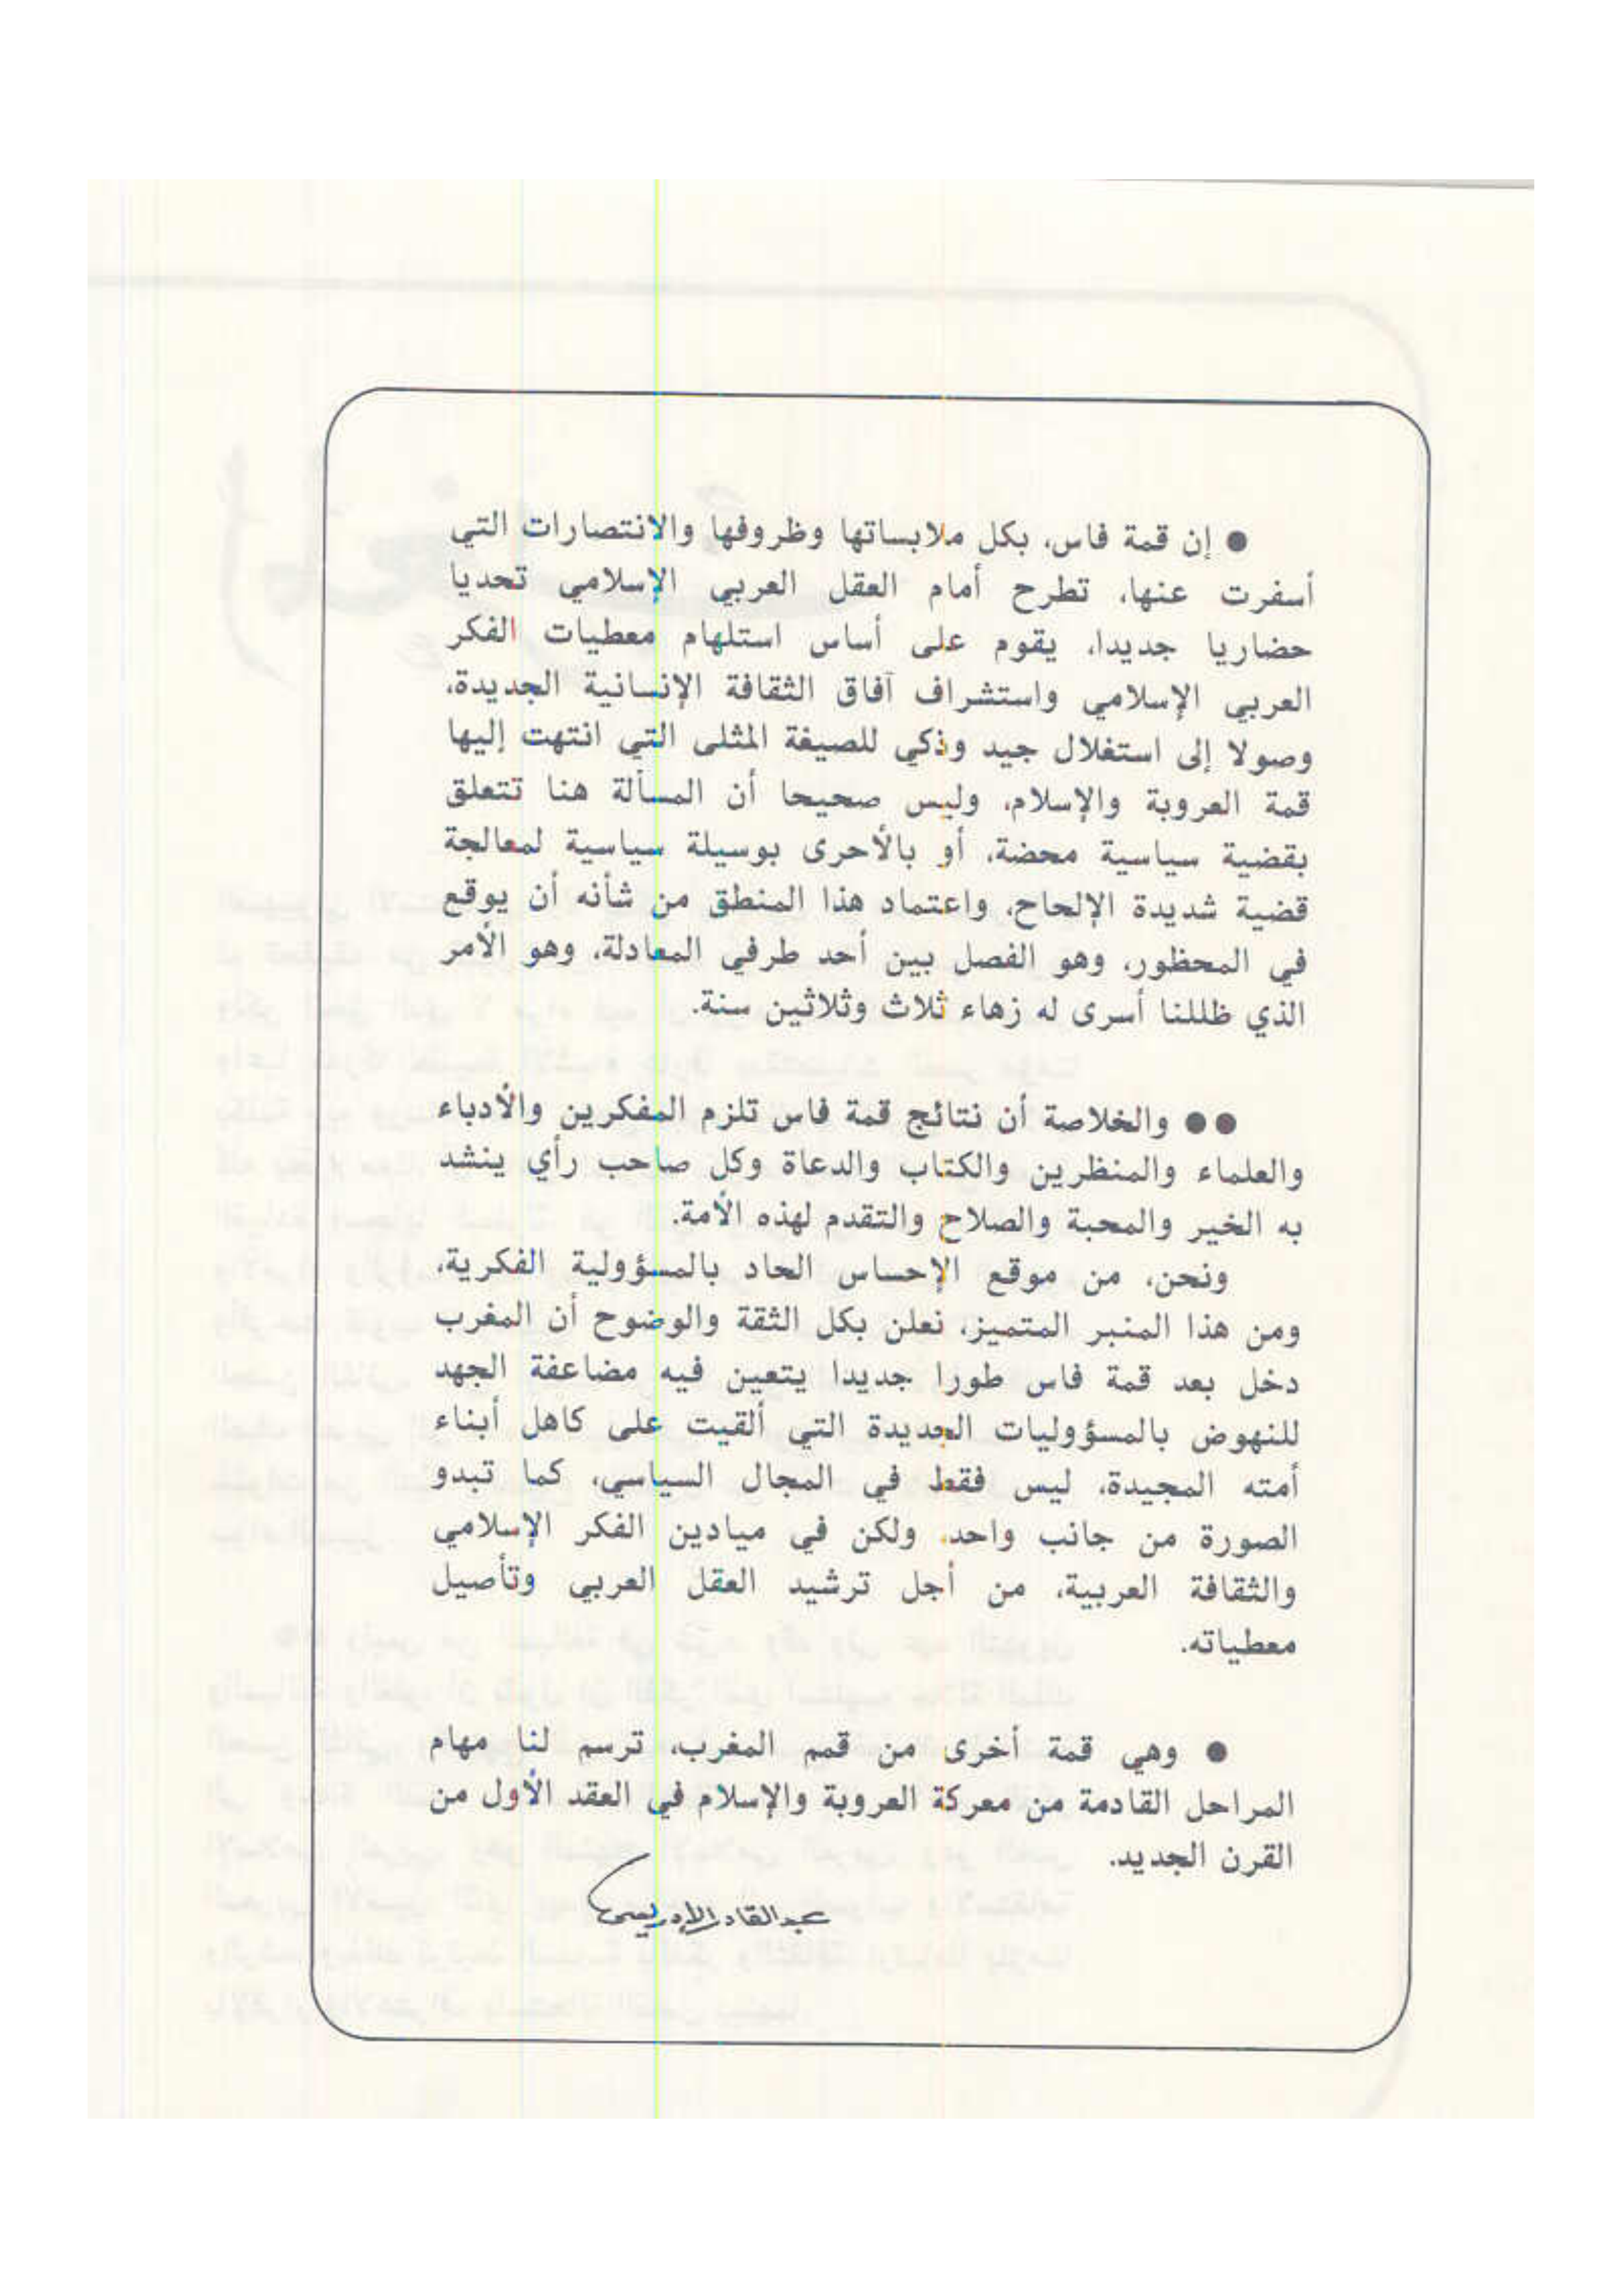 ● إن قمة فاس، بكل ملابساتها وظروفها والانتصارات التي
أسفرت عنها، تطرح أمام العقل العربي الإسلامي تحديا
حضاريا جديدا، يقوم على أساس استلهام معطيات الفكر
العربي الإسلامي واستشراف آفاق الثقافة الإنسانية الجديدة،
وصولا إلى استغلال جيد وذكي للصيغة المثلى التي انتهت إليها
قمة العروبة والإسلام، وليس صحيحا أن المسألة هنا تتعلق
بقضية سياسية محضة، أو بالأحرى بوسيلة سياسية لمعالجة
قضية شديدة الإلحاح، واعتماد هذا المنطق من شأنه أن يوقع
في المحظور، وهو الفصل بين أحد طرفي المعادلة، وهو الأمر
الذي ظللنا أسرى له زهاء ثلاث وثلاثين سنة.
●● والخلاصة أن نتائج قمة فاس تلزم المفكرين والأدباء
والعلماء والمنظرين والكتاب والدعاة وكل صاحب رأي ينشد
به الخير والمحبة والصلاح والتقدم لهذه الأمة.
ونحن، من موقع الإحساس الحاد بالمسؤولية الفكرية،
ومن هذا المنبر المتميز، نعلن بكل الثقة والوضوح أن المغرب
دخل بعد قمة فاس طورا جديدا يتعين فيه مضاعفة الجهد
للنهوض بالمسؤوليات الجديدة التي ألقيت على كاهل أبناء
أمته المجيدة، ليس فقط في المجال السياسي، كما تبدو
الصورة من جانب واحد، ولكن في ميادين الفكر الإسلامي
والثقافة العربية، من أجل ترشيد العقل العربي وتأصيل
معطياته.
● وهي قمة أخرى من قمم المغرب، ترسم لنا مهام
المراحل القادمة من معركة العروبة والإسلام في العقد الأول من
القرن الجديد.
عبد القادر الإدريسي